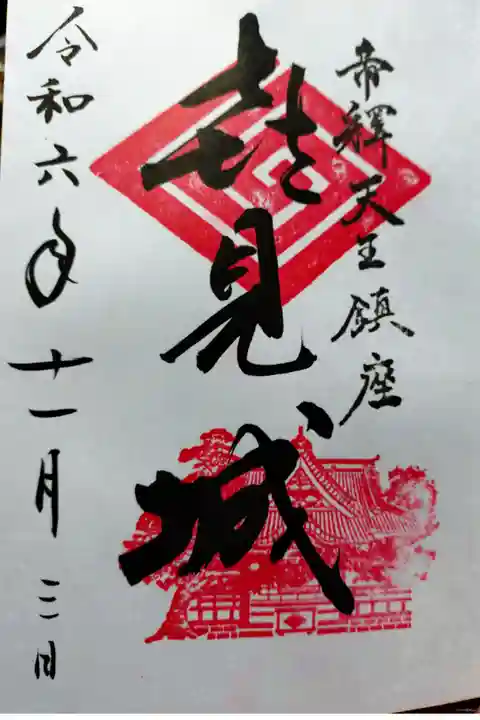 帝釋天王鎮座
㐂見城
令和六年十一月三日